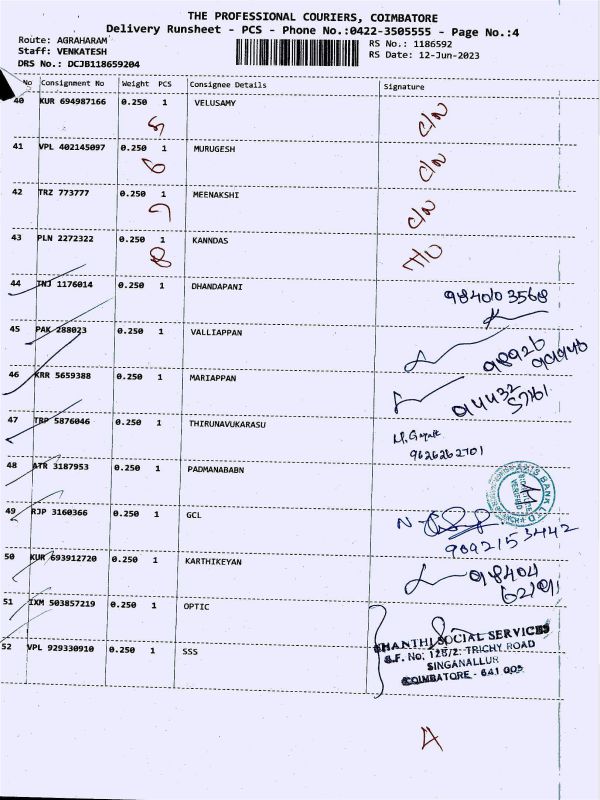 THE PROFESSIONAL COURIERS, COIMBATORE
Delivery Runsheet - PCS - Phone No.:0422-3505555 - Page No.:4
Route: AGRAHARAM
Staff: VENKATESH
DRS No.: DCJB118659204
RS No.: 1186592
RS Date: 12-Jun-2023
No Consignment No Weight PCS Consignee Details Signature
40 KUR 694987166 0.250 1 VELUSAMY
5 C/N
41 VPL 402145097 0.250 1 MURUGESH
6 C/N
42 TRZ 773777 0.250 1 MEENAKSHI
7 C/N
43 PLN 2272322 0.250 1 KANNDAS
8
44 TNJ 1176014 0.250 1 DHANDAPANI
984003568
45 PAK 288023 0.250 1 VALLIAPPAN
98926
46 KRR 5659388 0.250 1 MARIAPPAN
94432
57161
47 TRP 5876046 0.250 1 THIRUNAVUKARASU
9626262701
48 ATR 3187953 0.250 1 PADMANABABN
AXIS BANK LTD
49 RJP 3160366 0.250 1 GCL
9092153442
50 KUR 693912720 0.250 1 KARTHIKEYAN
98404
62191
51 IXM 503857219 0.250 1 OPTIC
52 VPL 929330910 0.250 1 SSS
SHANTHI SOCIAL SERVICES
S.F. No: 125/2: TRICHY ROAD
SINGANALLUR
COIMBATORE - 641 005
A